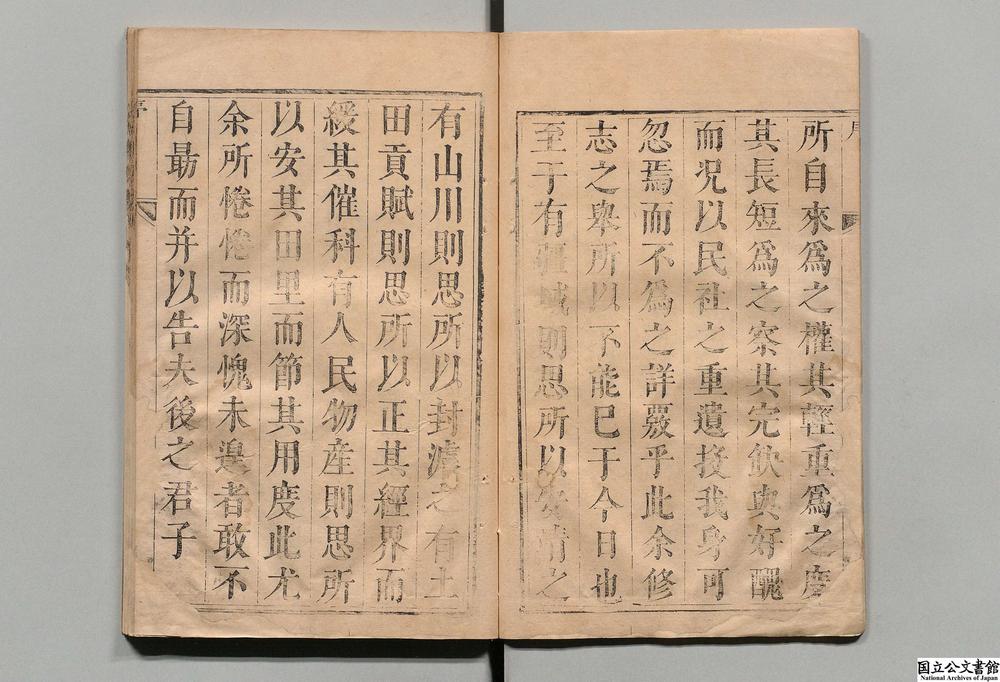 所自來爲之權其輕重爲之度
其長短爲之察其完缺與好醜
而况以民社之重遺投我身可
忽焉而不爲之詳覈乎此余修
志之舉所以不能已于今日也
至于有疆域則思所以清之
有山川則思所以封濬之有土
田貢賦則思所以正其經界而
緩其催科有人民物産則思所
以安其田里而節其用度此尤
余所惓惓而深愧未遑者敢不
自勗而并以告夫後之君子
国立公文書館
National Archives of Japan